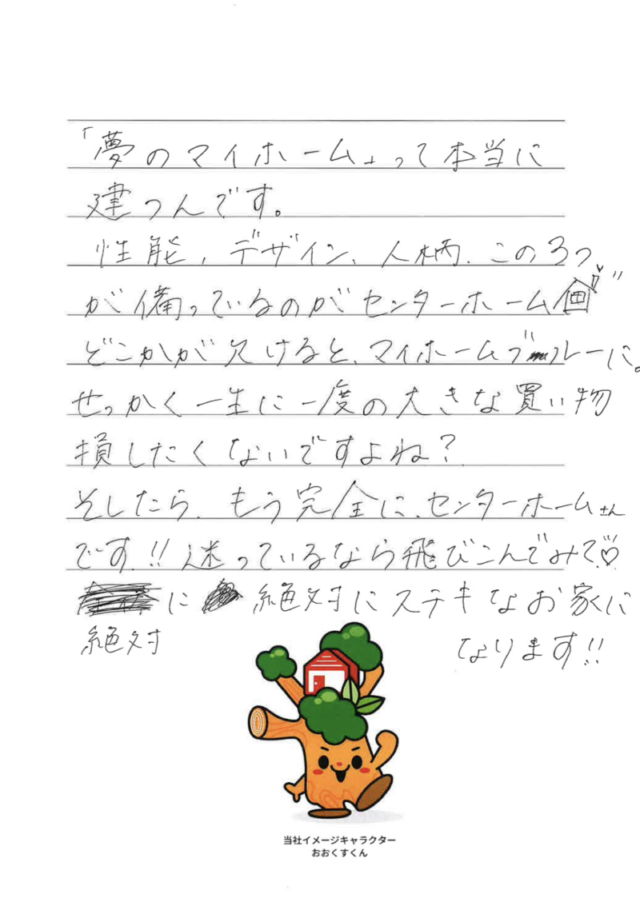 「夢のマイホーム」って本当に
建つんです。
性能、デザイン、人柄、この3つ
が備っているのがセンターホーム
どこかが欠けると、マイホームブルーに。
せっかく一生に一度の大きな買い物
損したくないですよね？
そしたら、もう完全に、センターホームさん
です!! 迷っているなら飛びこんでみて♡
に 絶対にステキなお家に
絶対
なります!!
当社イメージキャラクター
おおくすくん